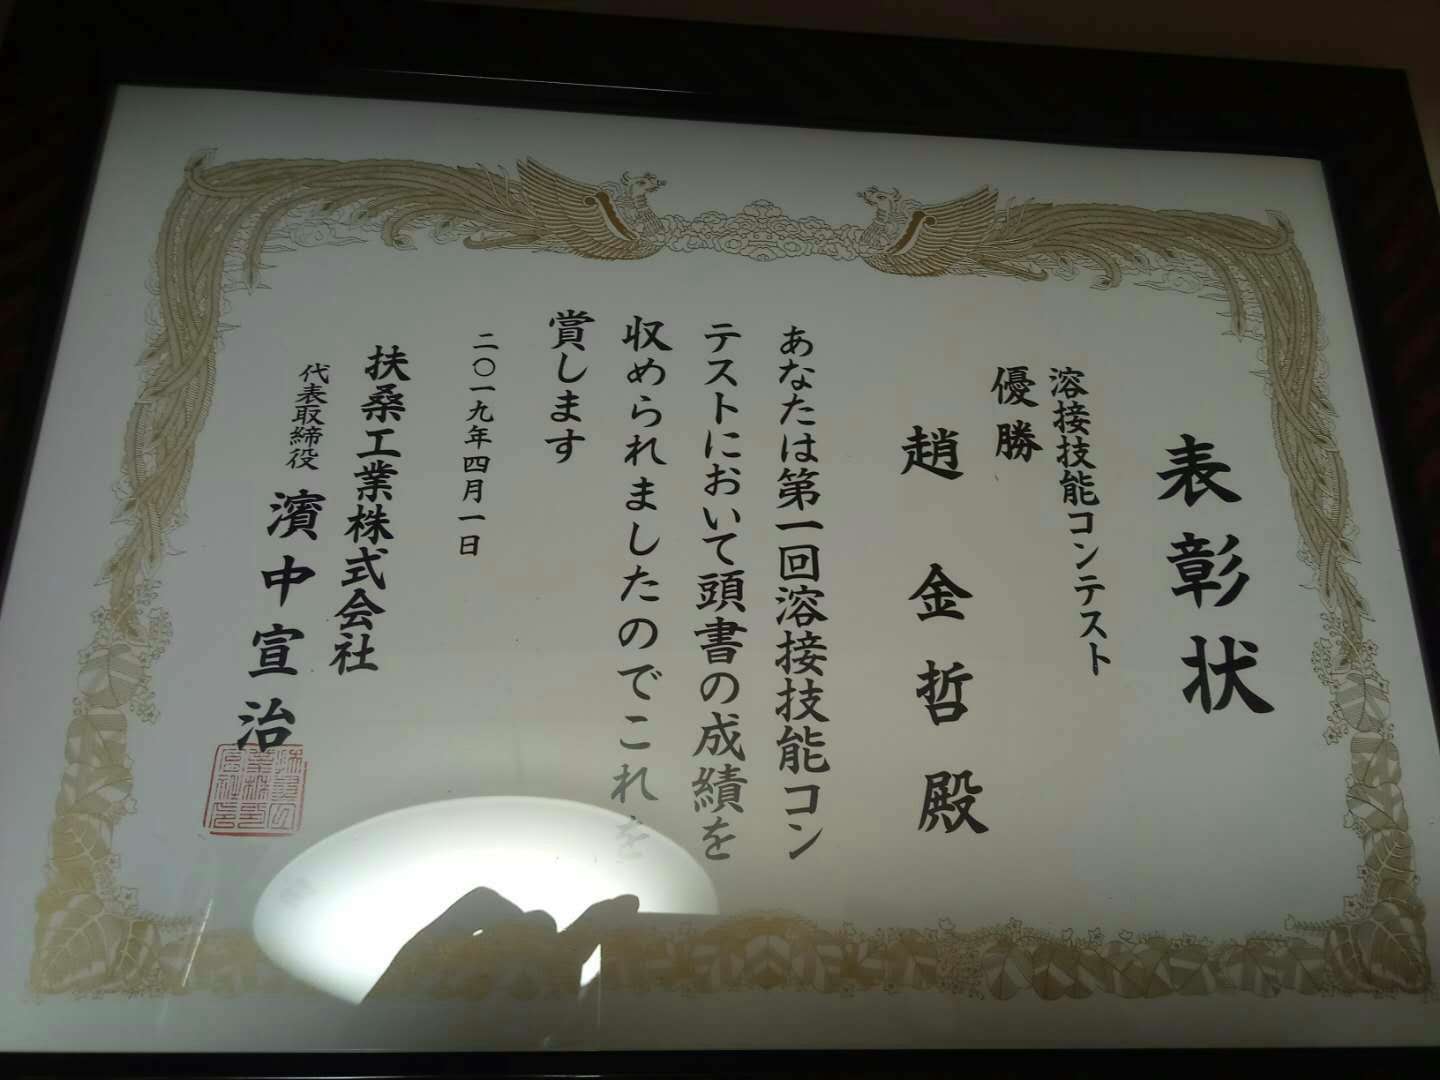 表彰状
溶接技能コンテスト
優勝
趙金哲殿
あなたは第一回溶接技能コン
テストにおいて頭書の成績を
収められましたのでこれを
賞します
二〇一九年四月一日
扶桑工業株式会社
代表取締役 濱中宣治